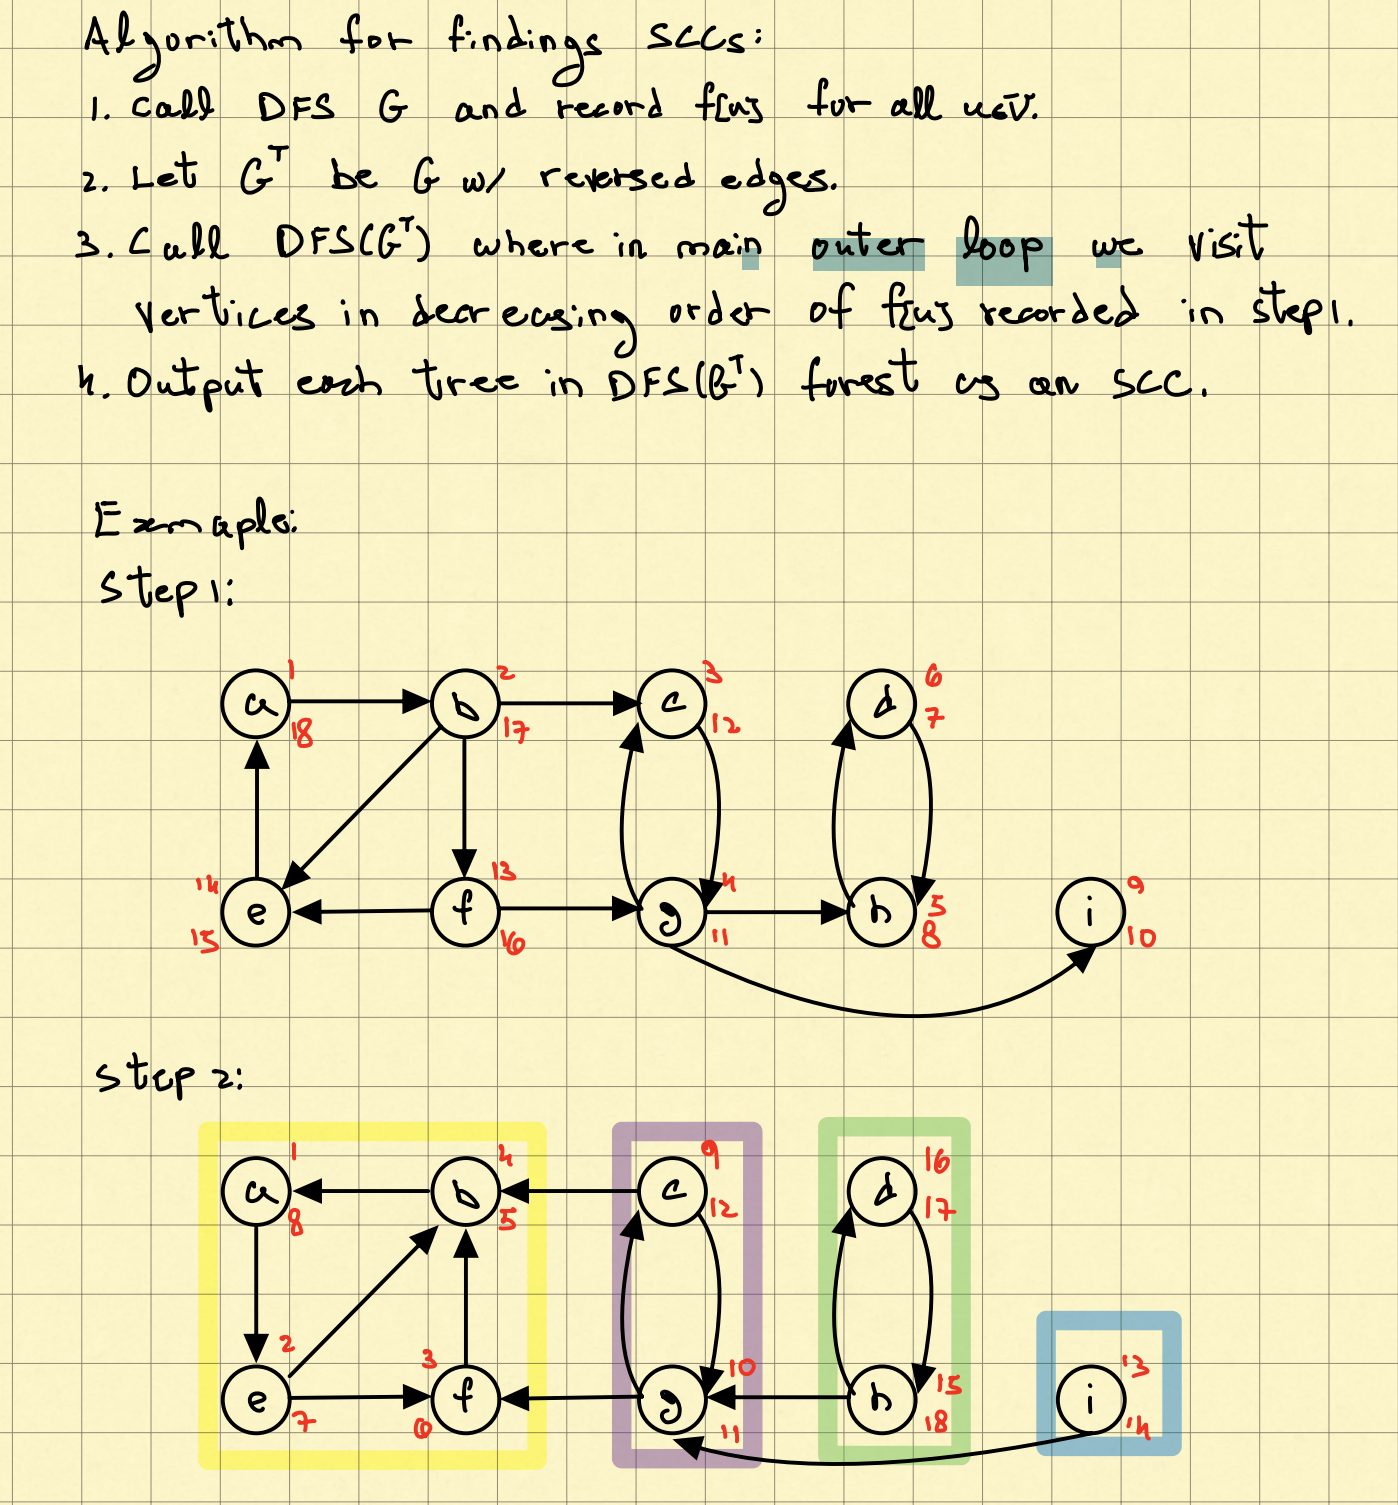 Algorithm for findings SCCs:
1. Call DFS G and record f[u] for all u∈V.
2. Let G^T be G w/ reversed edges.
3. Call DFS(G^T) where in main outer loop we visit
vertices in decreasing order of f[u] recorded in step 1.
4. Output each tree in DFS(G^T) forest as an SCC.
Example:
Step 1:
1 2 3 6
a b c d
18 17 12 7
14 13 4 5 9
e f g h i
15 16 11 8 10
Step 2:
1 4 9 16
a b c d
8 5 12 17
2 3 10 15 13
e f g h i
7 6 11 18 14